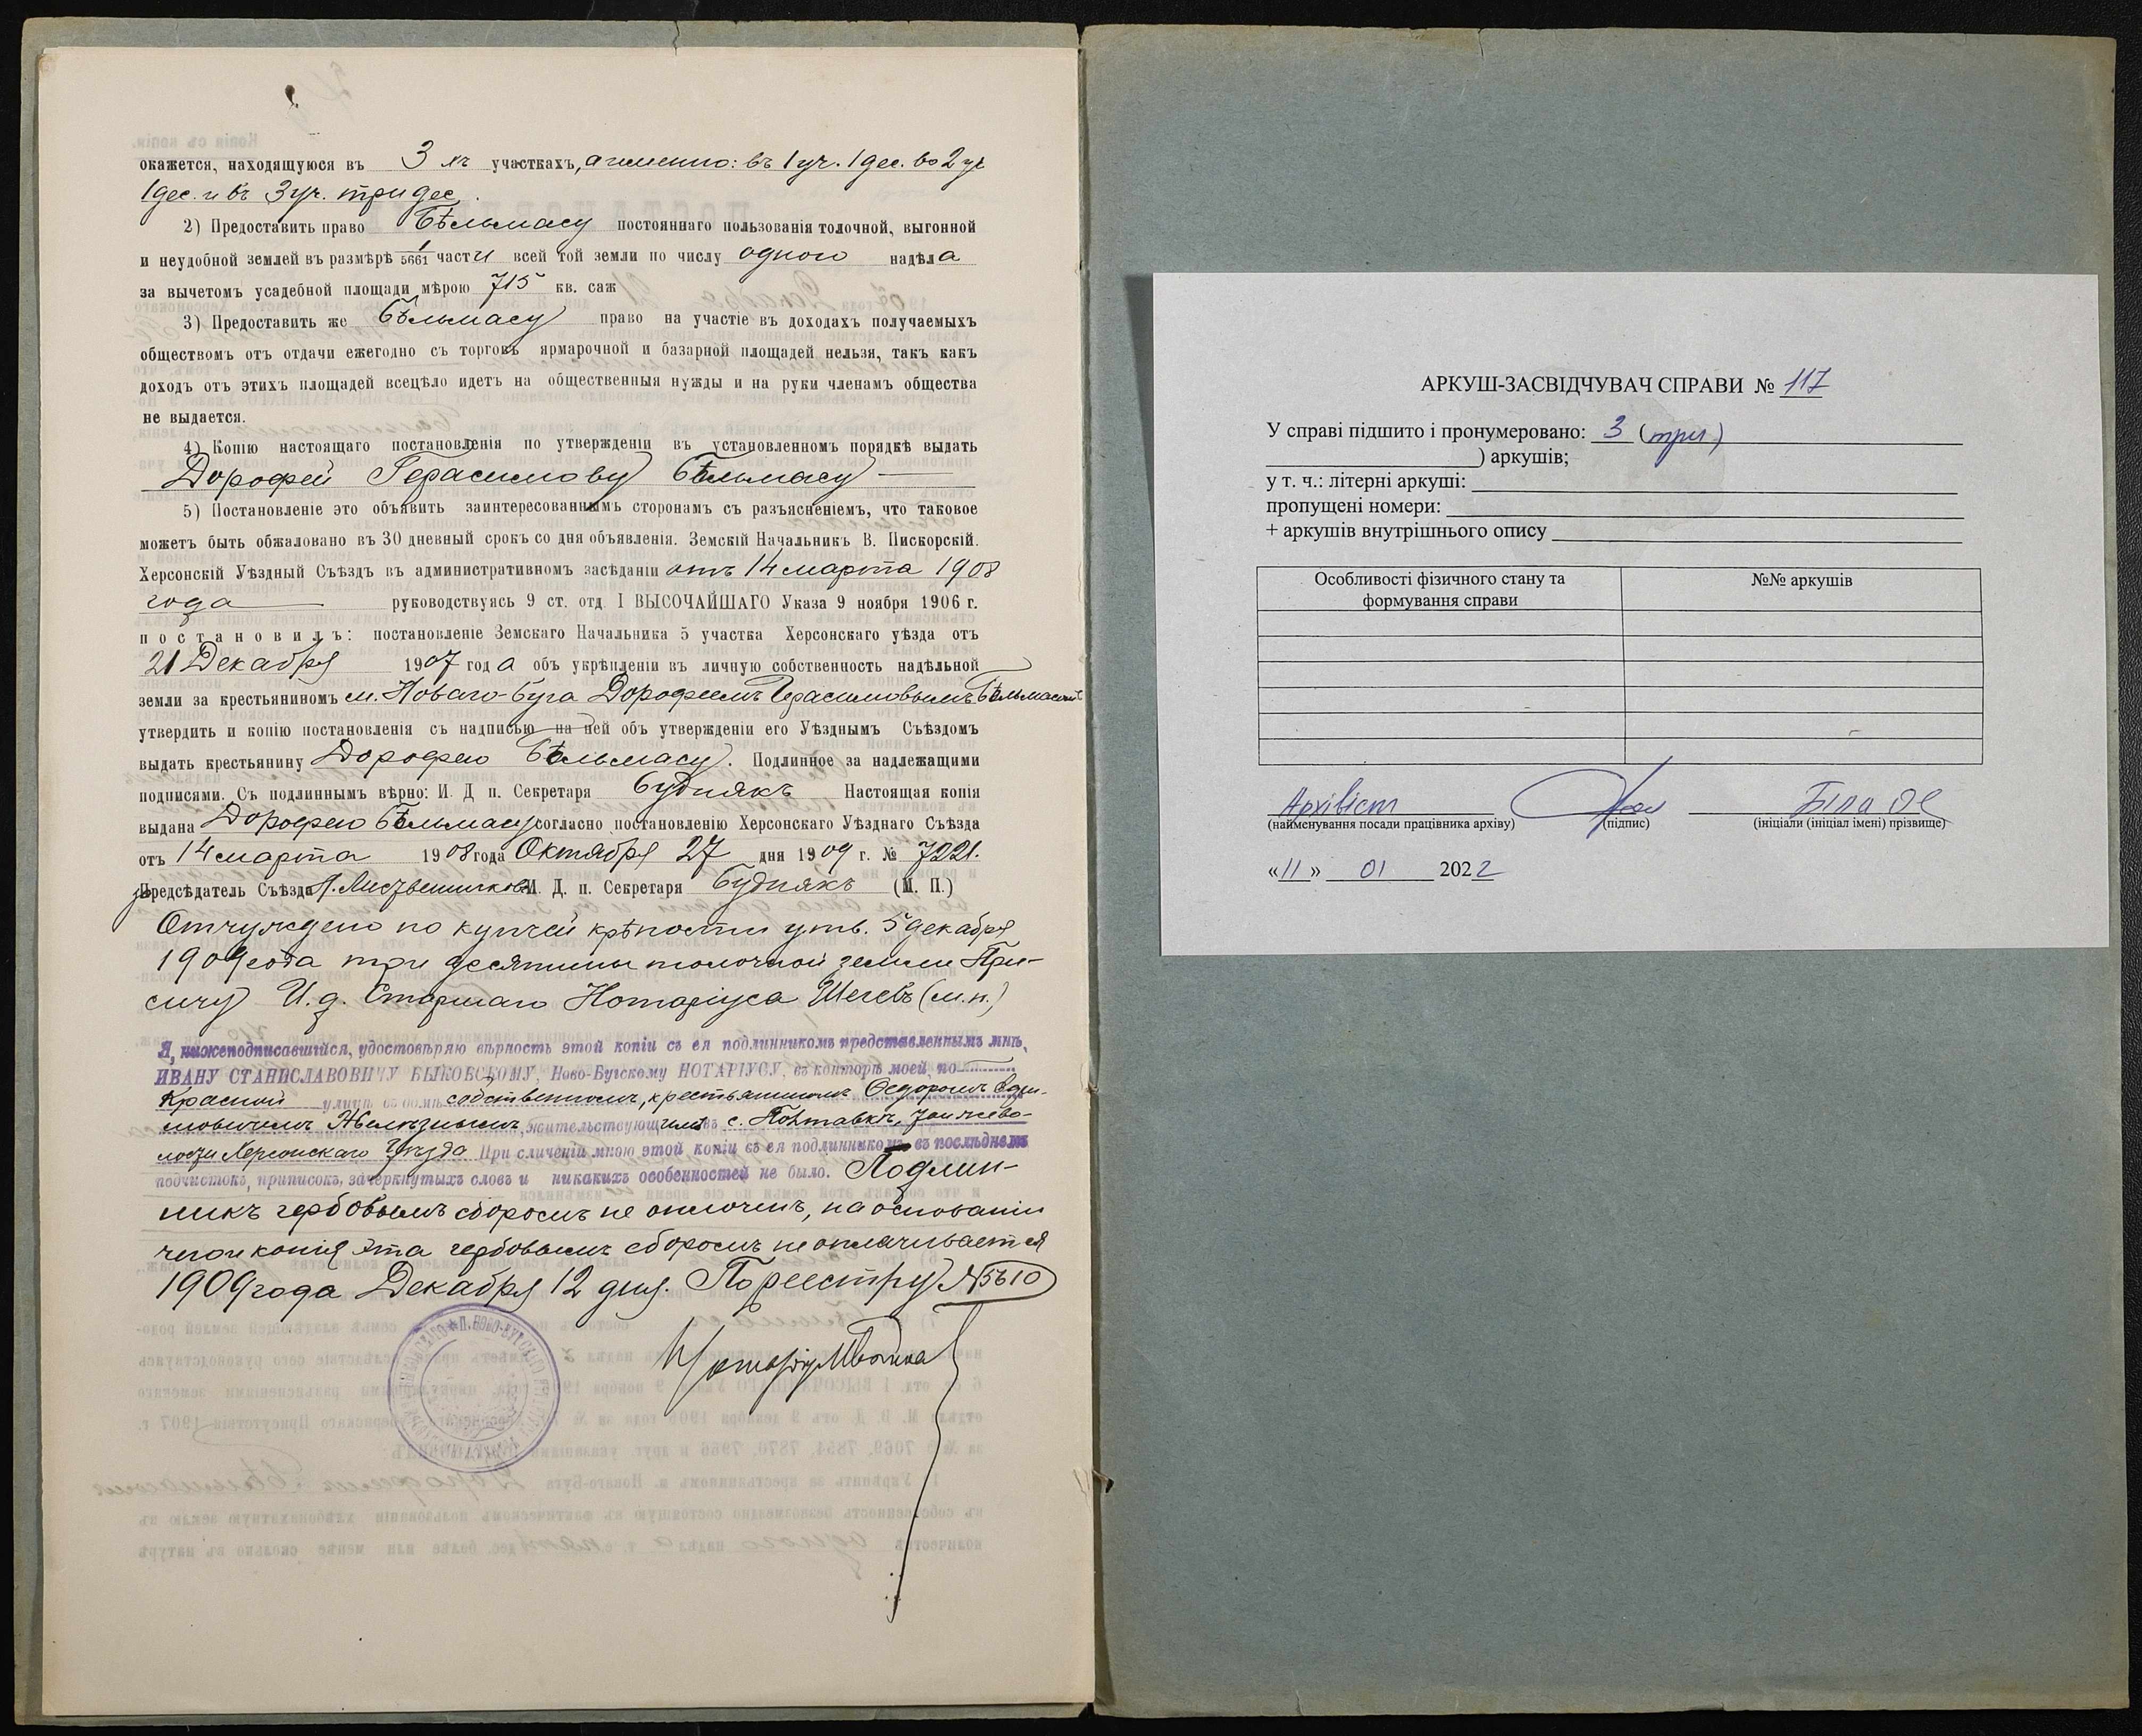 окажется, находящуюся въ 3 хъ участкахъ, а именно: въ 1 уч. 1 дес. во 2 уч
1 дес. и въ 3 уч. три дес.
2) Предоставить право Бѣльмасу постояннаго пользованія толочной, выгонной
и неудобной землей въ размѣрѣ 1/5661 части всей той земли по числу одного надѣла
за вычетомъ усадебной площади мѣрою 715 кв. саж
3) Предоставить же Бѣльмасу право на участіе въ доходахъ получаемыхъ
обществомъ отъ отдачи ежегодно съ торговъ ярмарочной и базарной площадей нельзя, такъ какъ
доходъ отъ этихъ площадей всецѣло идетъ на общественныя нужды и на руки членамъ общества
не выдается.
4) Копію настоящаго постановленія по утвержденіи въ установленномъ порядкѣ выдать
Дорофей Герасимову Бѣльмасу
5) Постановленіе это объявить заинтересованнымъ сторонамъ съ разъясненіемъ, что таковое
можетъ быть обжаловано въ 30 дневный срокъ со дня объявленія. Земскій Начальникъ В. Пискорскій.
Херсонскій Уѣздный Съѣздъ въ административномъ засѣданіи отъ 14 марта 1908
года руководствуясь 9 ст. отд I ВЫСОЧАЙШАГО Указа 9 ноября 1906 г.
постановилъ: постановленіе Земскаго Начальника 5 участка Херсонскаго уѣзда отъ
21 Декабря 1907 года объ укрѣпленіи въ личную собственность надѣльной
земли за крестьяниномъ м. Новаго-Буга Дорофеемъ Герасимовымъ Бѣльмасомъ
утвердить и копію постановленія съ надписью на ней объ утвержденіи его Уѣзднымъ Съѣздомъ
выдать крестьянину Дорофею Бѣльмасу. Подлинное за надлежащими
подписями. Съ подлиннымъ вѣрно: И. Д п. Секретаря Будниякъ Настоящая копія
выдана Дорофею Бѣльмасу согласно постановленію Херсонскаго Уѣзднаго Съѣзда
отъ 14 марта 1908 года Октября 27 дня 1909 г. № 7221.
Предсѣдатель Съѣзда И. Д. п. Секретаря Будниякъ (М. П.)
Отчуждено по купчей крѣпости утв. 5 декабря
1909 года три десятины толочной земли При-
сичу И. д. Старшаго Нотаріуса (м.п.)
Я, нижеподписавшійся, удостовѣряю вѣрность этой копіи съ ея подлинникомъ представленнымъ мнѣ,
ИВАНУ СТАНИСЛАВОВИЧУ БЫКОВСКОМУ, Ново-Бугскому НОТАРІУСУ, въ конторѣ моей, по
Красной улицѣ въ домѣ собственномъ, крестьяниномъ Ѳедоромъ
Желѣзнымъ, жительствующимъ въ с.
Херсонскаго уѣзда При сличеніи мною этой копіи съ ея подлинникомъ въ послѣднемъ
подчистокъ, приписокъ, зачеркнутыхъ словъ и никакихъ особенностей не было. Подлин-
никъ гербовымъ сборомъ не оплоченъ, на основаніи
чего и копія эта гербовымъ сборомъ не оплачивается
1909 года Декабря 12 дня. По реестру № 5610
АРКУШ-ЗАСВІДЧУВАЧ СПРАВИ № 117
У справі підшито і пронумеровано: 3 (три)
) аркушів;
у т. ч.: літерні аркуші:
пропущені номери:
+ аркушів внутрішнього опису
Особливості фізичного стану та формування справи
№№ аркушів
Архівіст Біла ОЄ
(найменування посади працівника архіву) (підпис) (ініціали (ініціал імені) прізвище)
«11» 01 2022